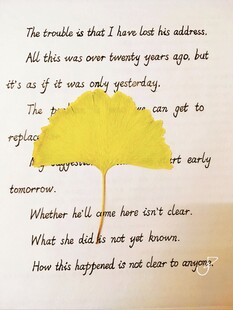 The trouble is that I have lost his address.
All this was over twenty years ago, but
it's as if it was only yesterday.
The can get to
replace
early
tomorrow.
Whether he'll come here isn't clear.
What she did is not yet known.
How this happened is not clear to anyone.